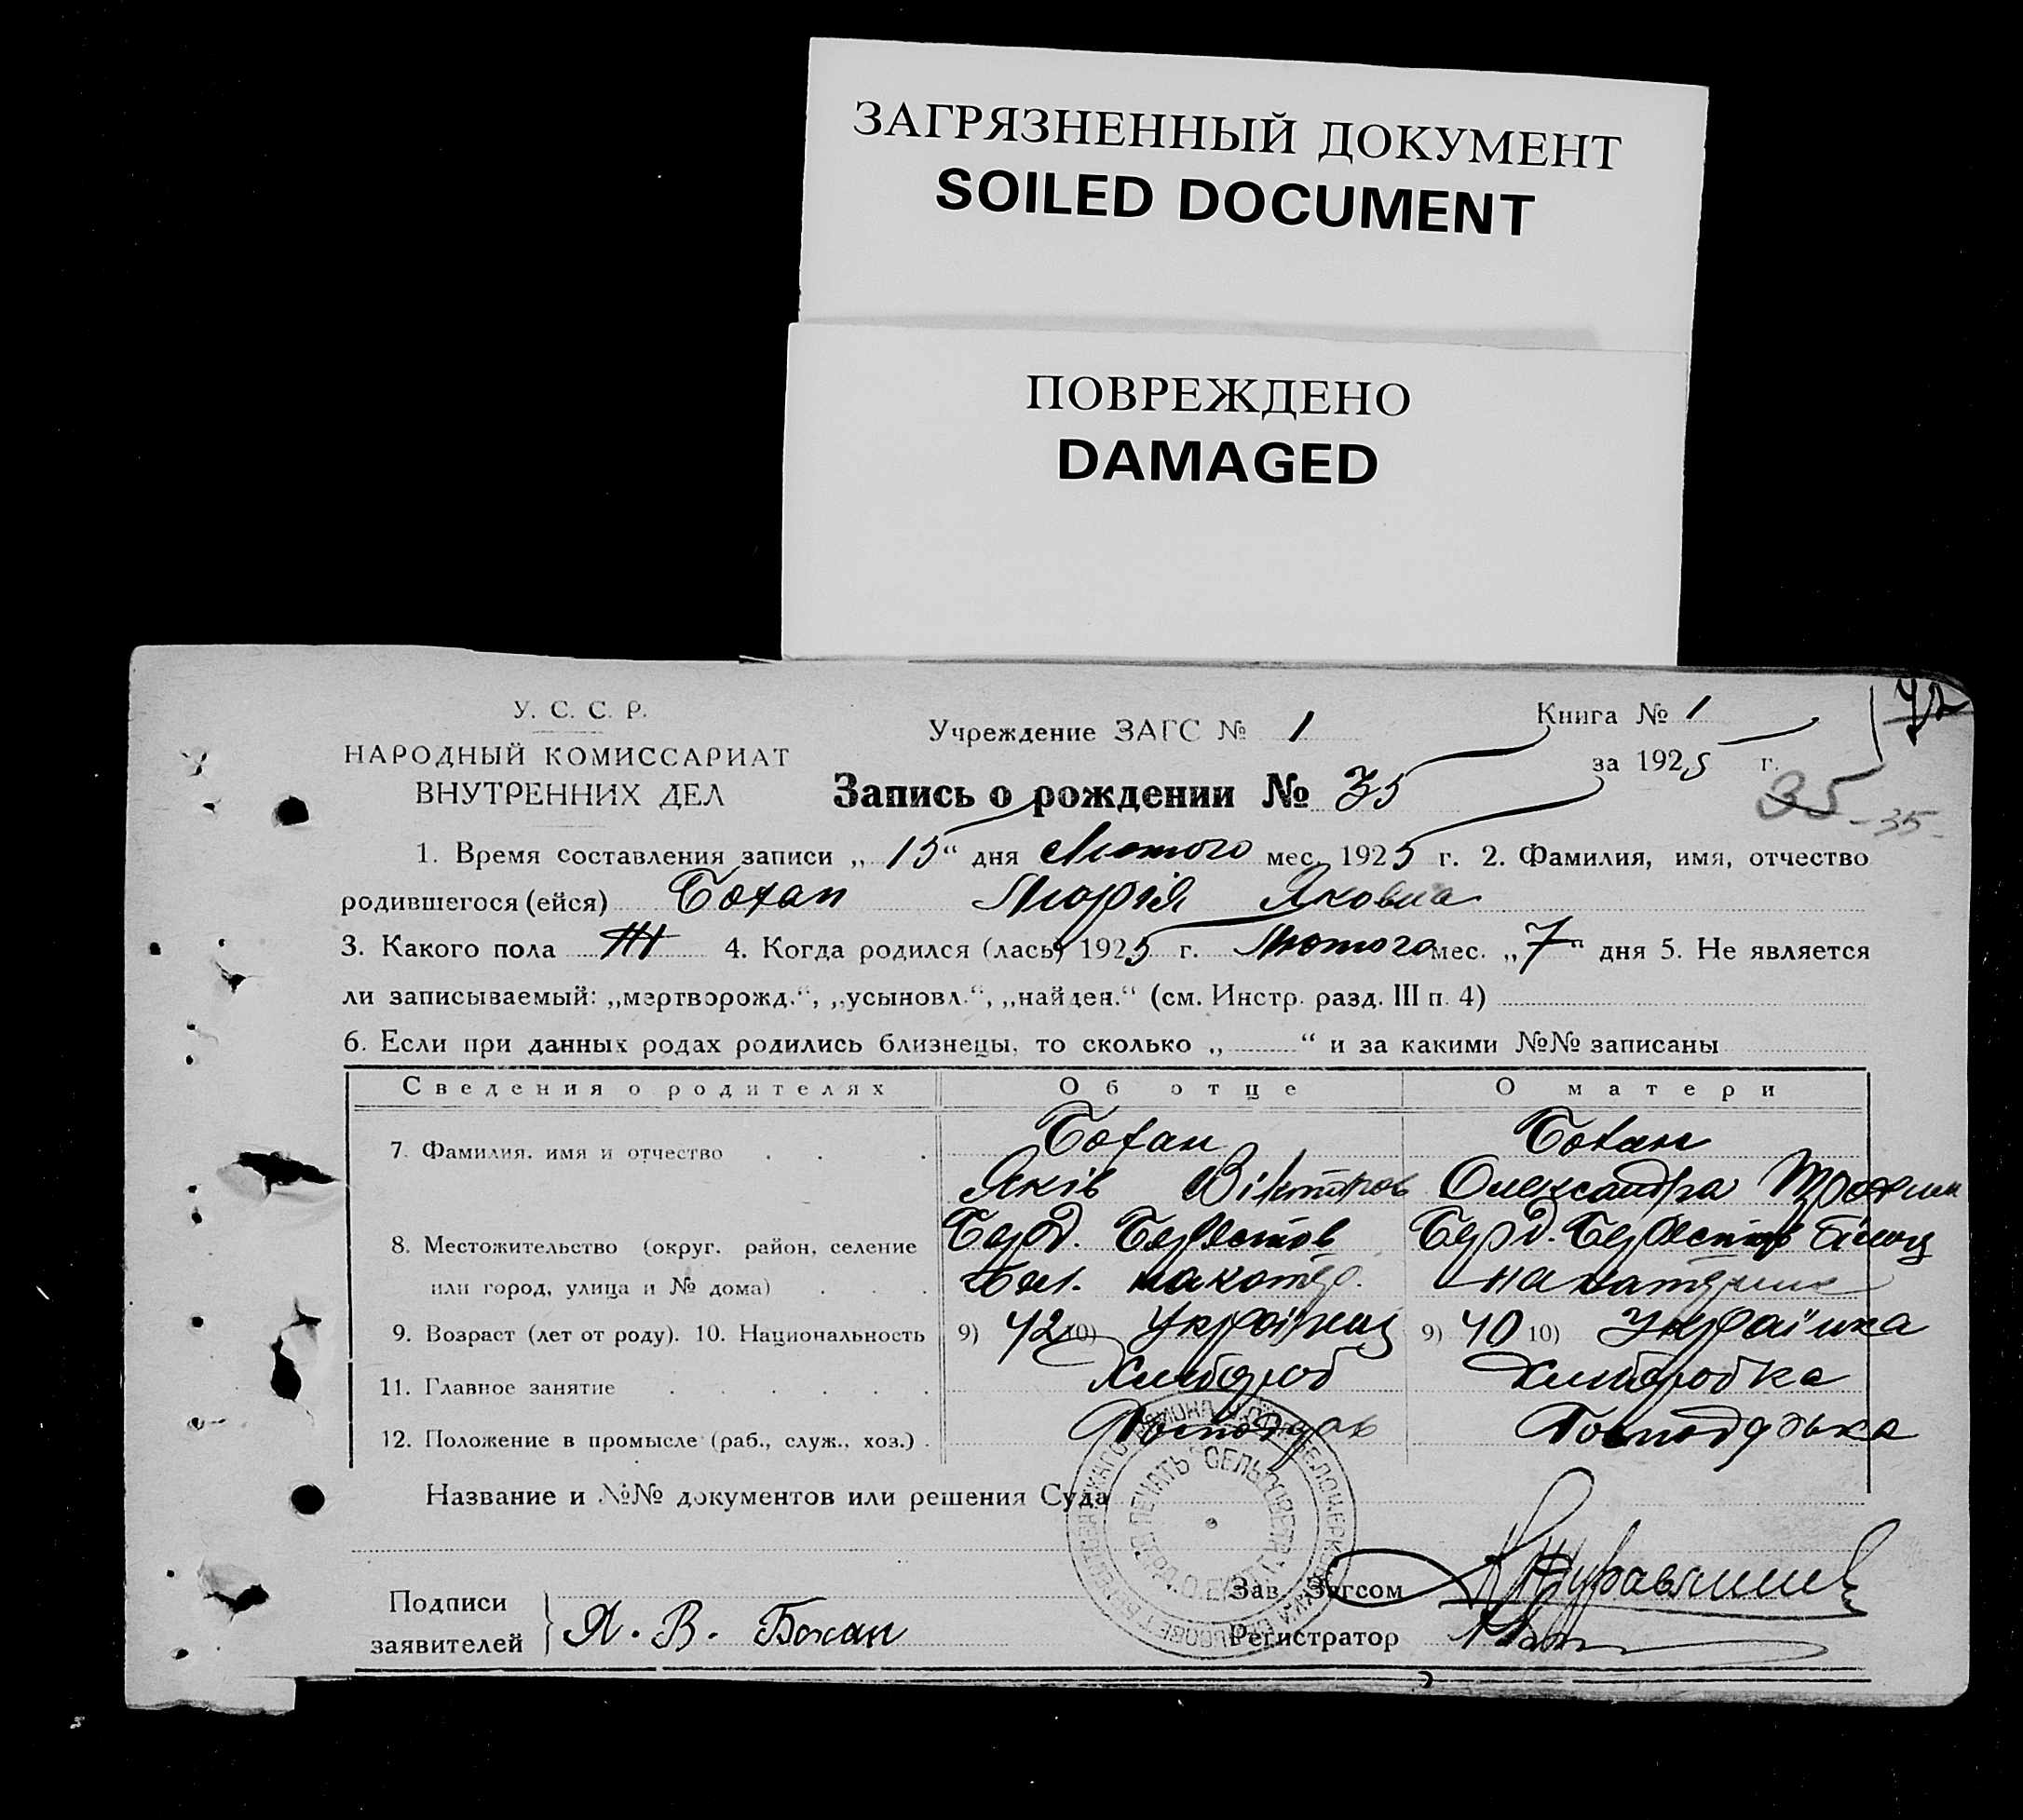 ЗАГРЯЗНЕННЫЙ ДОКУМЕНТ
SOILED DOCUMENT
ПОВРЕЖДЕНО
DAMAGED
У. С. С. Р.
НАРОДНЫЙ КОМИССАРИАТ
ВНУТРЕННИХ ДЕЛ
Учреждение ЗАГС № 1
Книга № 1
за 1925 г.
Запись о рождении № 35
35 - 35 -
1. Время составления записи „15“ дня Лютого мес. 1925 г. 2. Фамилия, имя, отчество
родившегося (ейся) Бохан Марія Яковна
3. Какого пола Ж 4. Когда родился (лась) 1925 г. Лютого мес. „7“ дня 5. Не является
ли записываемый: „мертворожд.“, „усыновл.“, „найден.“ (см. Инстр. разд. III п. 4)
6. Если при данных родах родились близнецы, то сколько „ “ и за какими №№ записаны
Сведения о родителях Об отце О матери
7. Фамилия, имя и отчество Бохан Бохан
Яків Олександра
8. Местожительство (округ. район, селение Берд. Берестов Берд. Берестов
или город, улица и № дома)
9. Возраст (лет от роду). 10. Национальность 9) 42 10) Українец 9) 40 10) Українка
11. Главное занятие Хлибороб Хлиборобка
12. Положение в промысле (раб., служ., хоз.)
Название и №№ документов или решения Суда
ПЕЧАТЬ СЕЛЬСОВЕТА
Подписи
заявителей Я. В. Бохан
Зав. Загсом
Регистратор